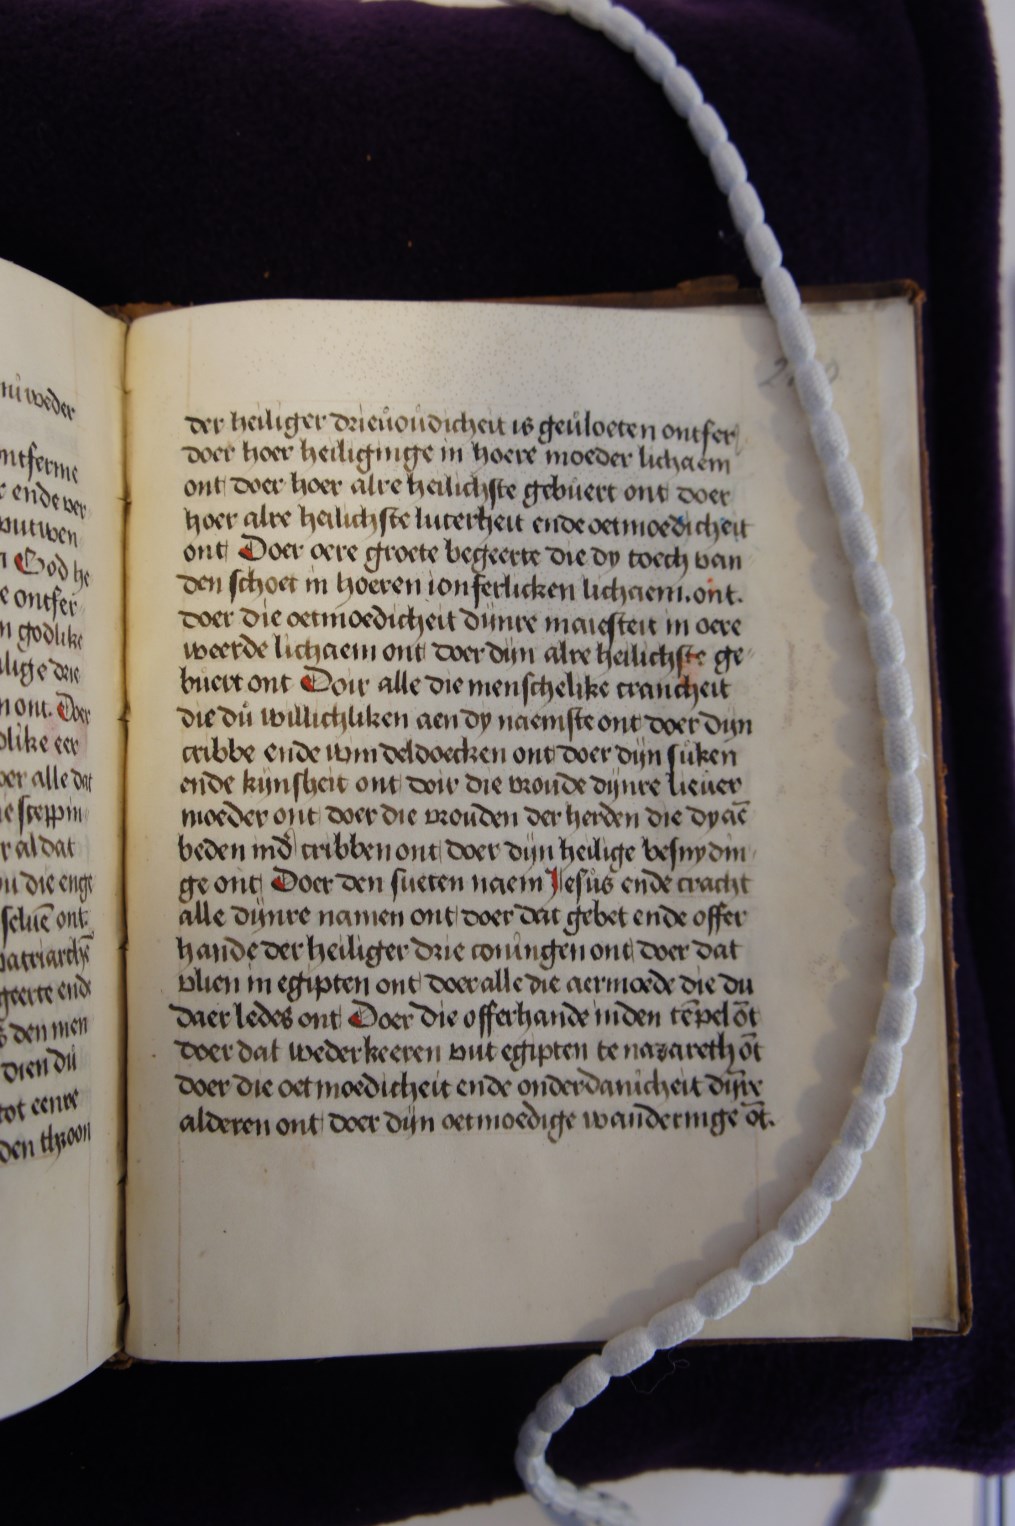 nu weder
ntferme
r ende ver
vutwen
n God he
e ontfer
n godlike
ilige drie
n ont. Doer
olike eer
oer alle dat
ie steppin
r al dat
die enge
seluē ont
patriarchē
geerte ende
s den men
dien dů
tot eenre
den throon
der heiliger drieůoůdicheit is geůloeten ontfer
doer hoer heiliginge in hoere moeder lichaem
ont doer hoer alre heilichste gebůert ont doer
hoer alre heilichste luterheit ende oetmoedicheit
ont Doer oere groete begeerte die dy toech van
den schoet in hoeren ionferlicken lichaem. ont.
doer die oetmoedicheit dijnre maiesteit in oere
weerde lichaem ont doer dijn alre heilichste ge
buert ont Doir alle die menschelike crancheit
die dů willichliken aen dy naemste ont doer dijn
cribbe ende windeldoecken ont doer dijn sůken
ende kijnsheit ont doir die vroude dijnre lieuer
moeder ont doer die vrouden der herden die dy aē
beden indˀ cribben ont doer dijn heilige besnydin
ge ont Doer den sueten naem Jesůs ende cracht
alle dijnre namen ont doer dat gebet ende offer
hande der heiliger drie coningen ont doer dat
vlien in egipten ont doer alle die aermoede die du
daer ledes ont Doer die offerhande inden tēpel ōt
doer dat wederkeeren vut egipten te nazareth ōt
doer die oetmoedicheit ende onderdanicheit dijnre
alderen ont doer dijn oetmoedige wanderinge ōt.